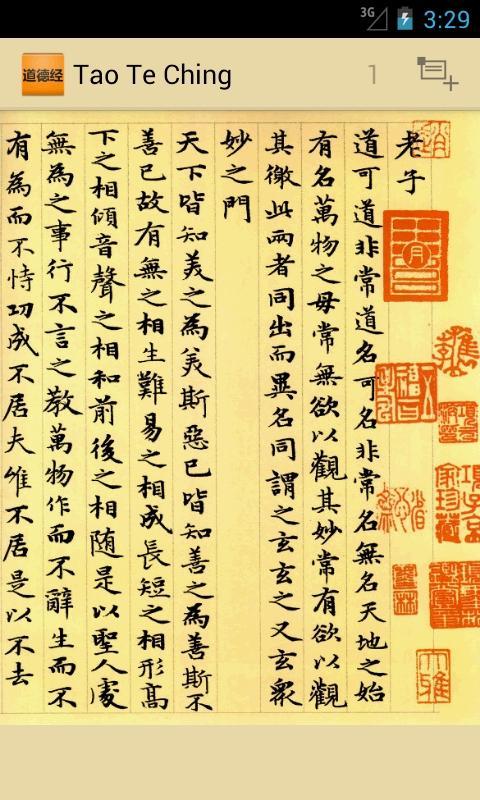 3G 3:29
道德经 Tao Te Ching 1
老子
道可道非常道名可名非常名無名天地之始
有名萬物之母常無欲以觀其妙常有欲以觀
其徼此兩者同出而異名同謂之玄玄之又玄眾
妙之門
天下皆知美之為美斯惡已皆知善之為善斯不
善已故有無之相生難易之相成長短之相形高
下之相傾音聲之相和前後之相随是以聖人處
無為之事行不言之教萬物作而不辭生而不
有為而不恃功成不居夫唯不居是以不去